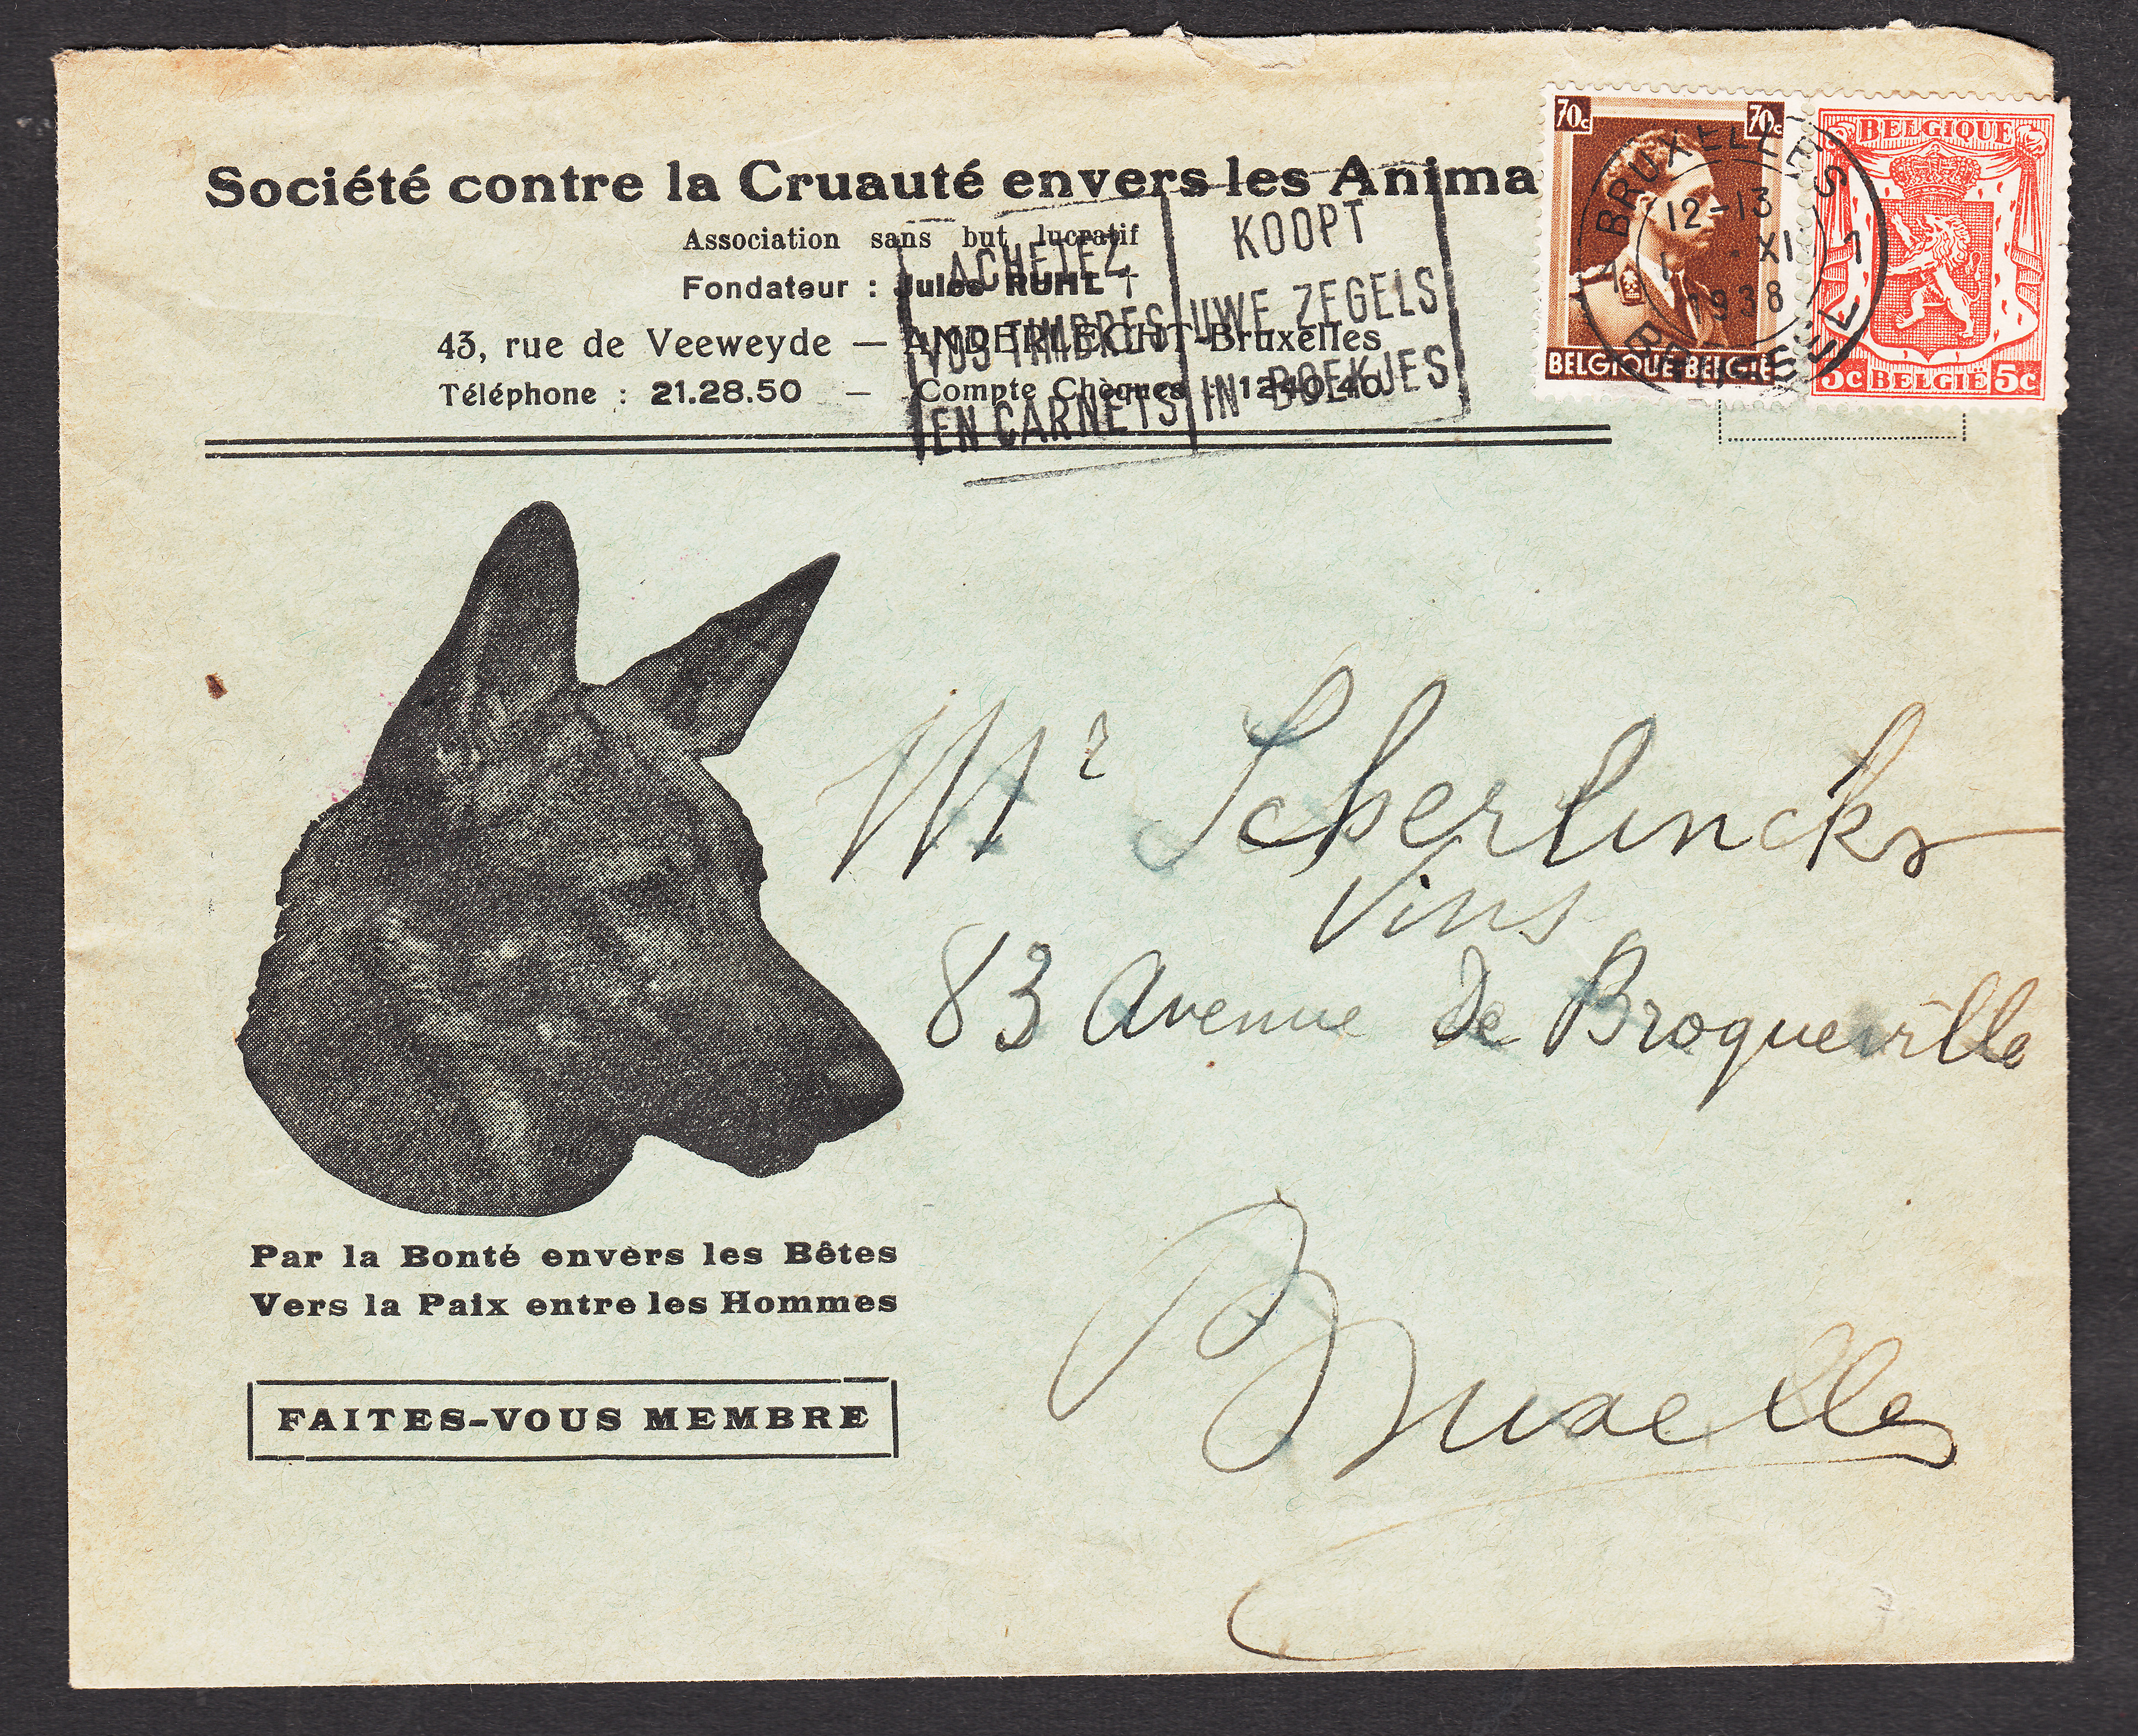 Société contre la Cruauté envers les Anima
Association sans but lucratif
Fondateur : Jules RUHL †
43, rue de Veeweyde — ANDERLECHT-Bruxelles
Téléphone : 21.28.50 — Compte Chèques : 1240.40
ACHETEZ
VOS TIMBRES
EN CARNETS
KOOPT
UWE ZEGELS
IN BOEKJES
70c 70c
BELGIQUE-BELGIE
BELGIQUE
5c BELGIË 5c
1 BRUXELLES 1
12-13
1 · XI
1938
BRUSSEL
Mr Scherlincks
Vins
83 Avenue de Broqueville
Bruxelles
Par la Bonté envers les Bêtes
Vers la Paix entre les Hommes
FAITES-VOUS MEMBRE